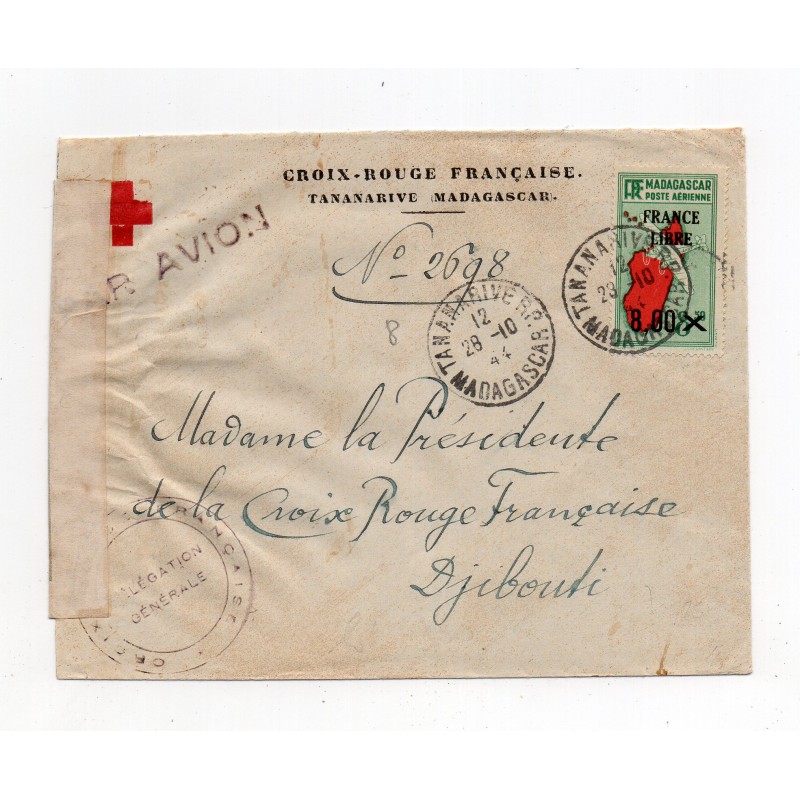 CROIX-ROUGE FRANÇAISE.
TANANARIVE (MADAGASCAR).
RF MADAGASCAR
POSTE AÉRIENNE
FRANCE
LIBRE
8,00
AVION
No 2698
8
TANANARIVE R.P.
12
28-10
44
MADAGASCAR
TANANARIVE R.P.
12
28-10
MADAGASCAR
Madame la Présidente
de la Croix Rouge Française
Djibouti
DÉLÉGATION
GÉNÉRALE